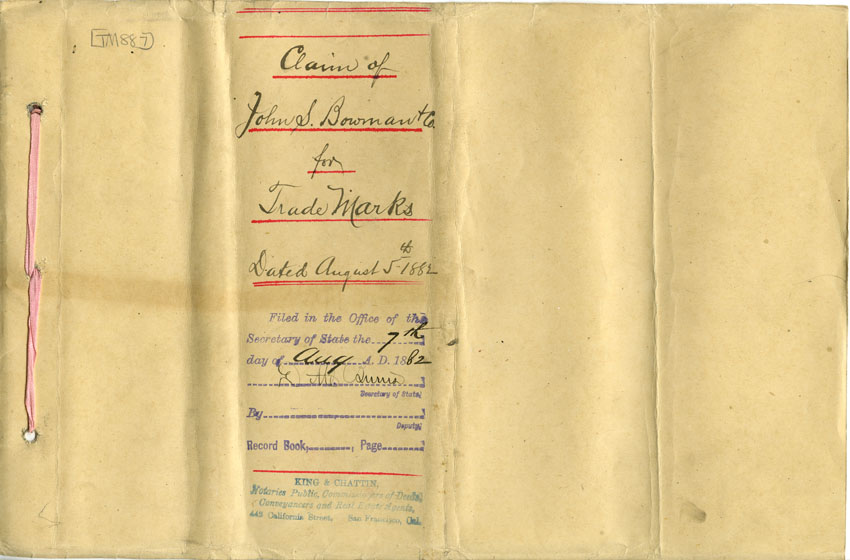 [TM887]
Claim of
John S. Bowman & Co.
for
Trade Marks
Dated August 5th 1882
Filed in the Office of the
Secretary of State the 7th
day of Aug A. D. 1882
Secretary of State
By
Deputy
Record Book, ; Page
KING & CHATTIN,
Notaries Public, Commissioners of Deeds,
Conveyancers and Real Estate Agents,
443 California Street, San Francisco, Cal.